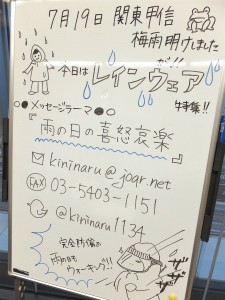 7月19日 関東甲信
梅雨明けしました
が!!
今日は レインウェア
特集!!
メッセージテーマ
『雨の日の喜怒哀楽』
kininaru@joqr.net
FAX 03-5403-1151
@kininaru1134
完全防備の
雨の日もウォーキング!!
ザザザ